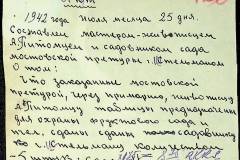 1942 года июля месяца 25 дня.
Составлен мастером-живописцем
А.Питомцем и садовником сада
мостовской претуры г. Штельмахом
о том:
Что заказанные мостовской
претурой, через примарию, живописцу
А.Питомцу таблицы предназначен.
для охраны фруктового сада в
сданы садовнику
г. Штельмаху количеством
5 штук